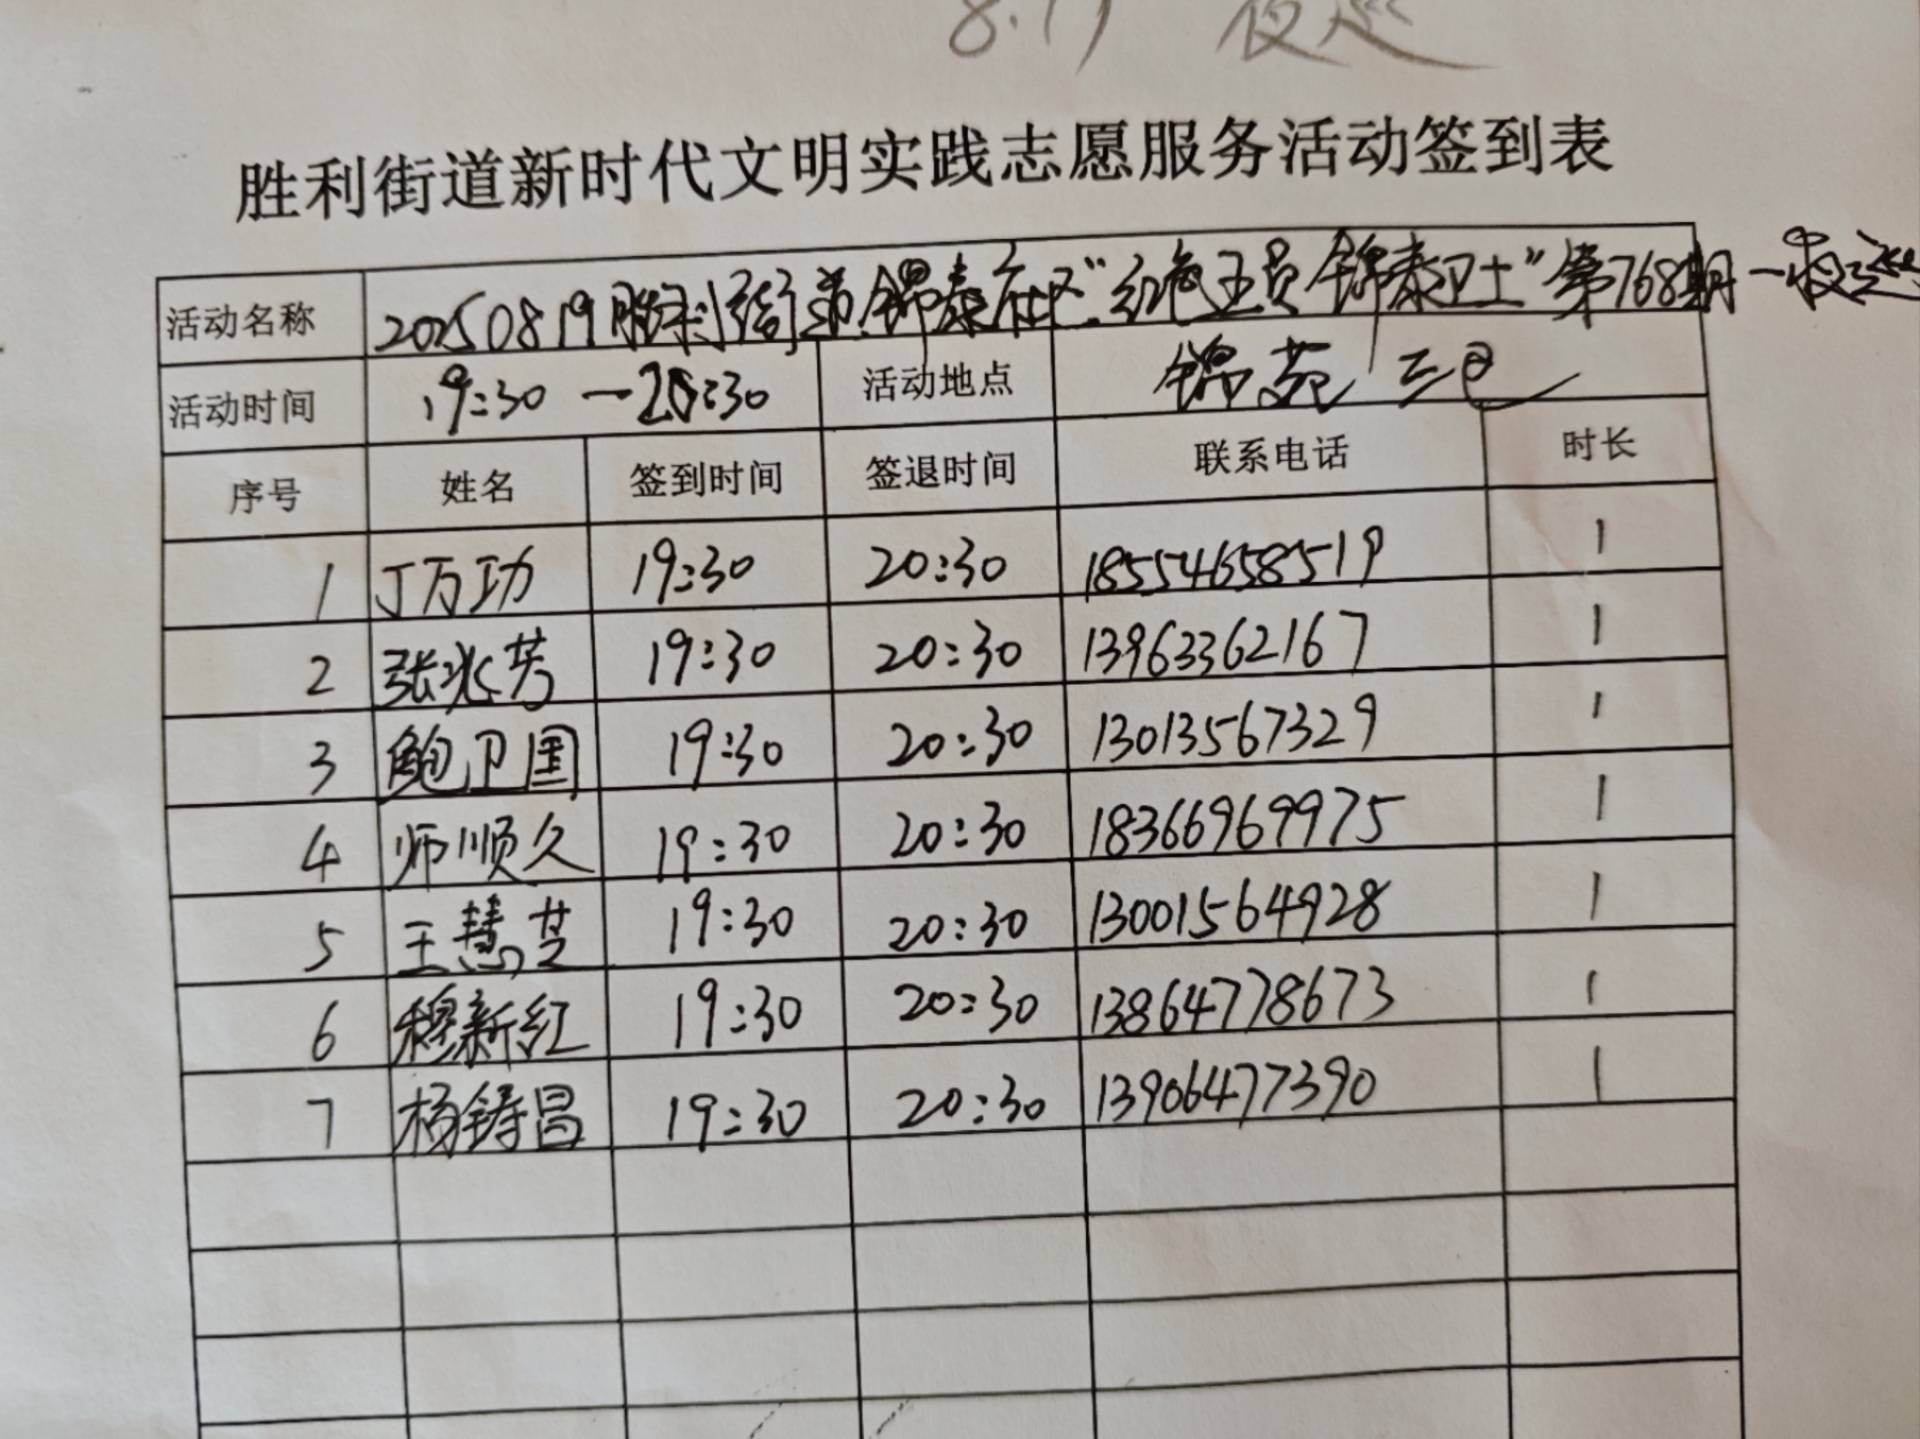 8.19 夜巡
胜利街道新时代文明实践志愿服务活动签到表
活动名称 20250819胜利街道锦泰社区“红色主员 锦泰卫士”第768期—夜巡
活动时间 19:30—20:30 活动地点 锦苑三区
序号 姓名 签到时间 签退时间 联系电话 时长
1 丁万功 19:30 20:30 18554658519 1
2 张兆芳 19:30 20:30 13963362167 1
3 鲍卫国 19:30 20:30 13013567329 1
4 师顺久 19:30 20:30 18366969975 1
5 王慧芝 19:30 20:30 13001564928 1
6 穆新红 19:30 20:30 13864778673 1
7 杨铸昌 19:30 20:30 13906477390 1